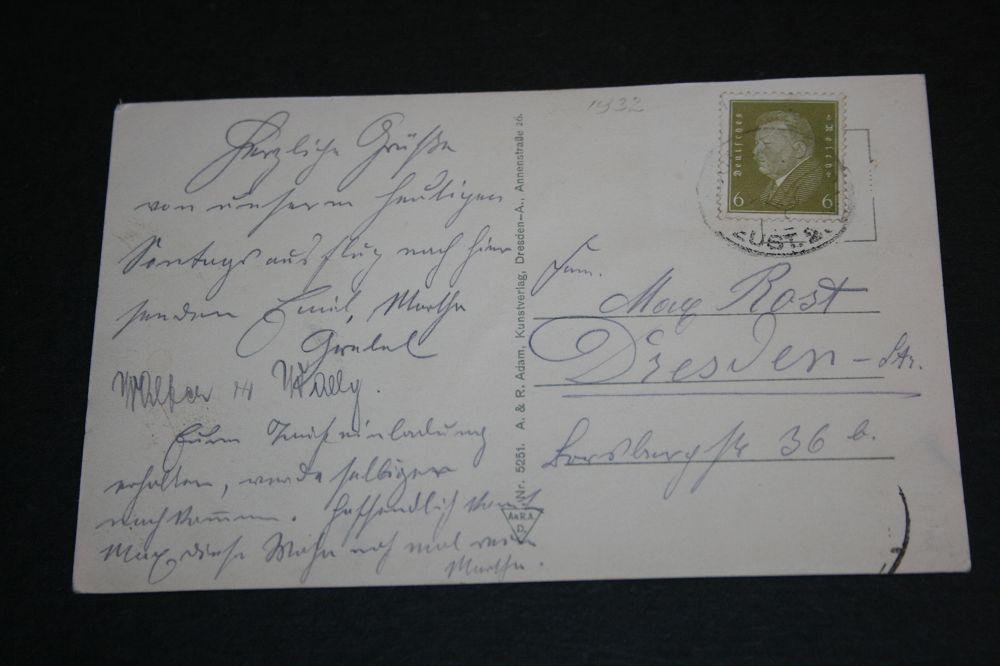 Herzliche Grüße
von unserm heutigen
Sontagsausflug nach hier
senden Emil, Martha
Walter u Wally.
Eure einladung
erhalten, werde selbiger
nachkommen. Hoffendlich kommt
Max diese Woche noch mal
Martha.
Nr. 5251. A. & R. Adam, Kunstverlag, Dresden-A., Annenstraße 26.
A&R.A
D.
1932
Deutsches Reich
6 6
Fam.
Max Rost
Dresden-Str.
36 b.